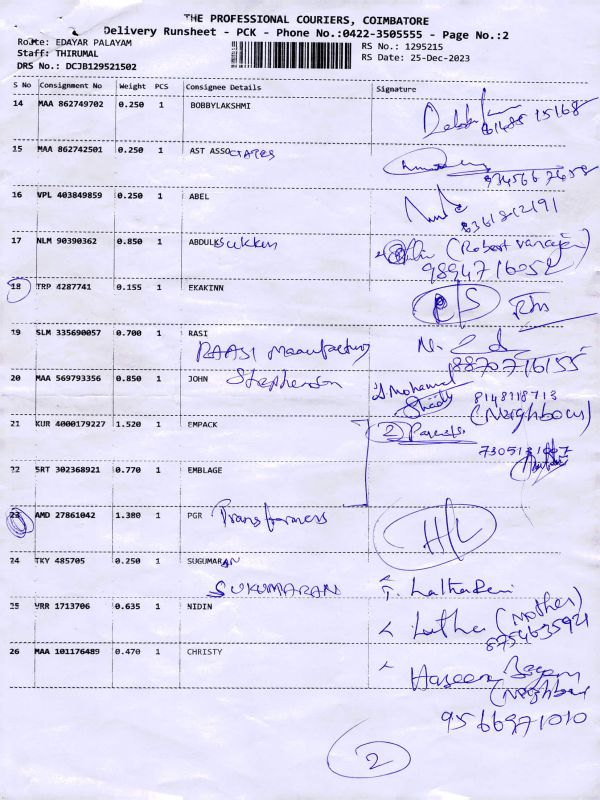 THE PROFESSIONAL COURIERS, COIMBATORE
Delivery Runsheet - PCK - Phone No.:0422-3505555 - Page No.:2
Route: EDAYAR PALAYAM
RS No.: 1295215
Staff: THIRUMAL
RS Date: 25-Dec-2023
DRS No.: DCJB129521502
S No Consignment No Weight PCS Consignee Details Signature
14 MAA 862749702 0.250 1 BOBBYLAKSHMI
15 MAA 862742501 0.250 1 AST ASSOCIATES
16 VPL 403849859 0.250 1 ABEL
17 NLM 90390362 0.850 1 ABDULK
9894716052
18 TRP 4287741 0.155 1 EKAKINN
19 SLM 335690057 0.700 1 RASI
RAASI Manufacturing
8870716155
20 MAA 569793356 0.850 1 JOHN Stephenson
8148118713
(Neighbour)
21 KUR 4000179227 1.520 1 EMPACK 2 Parcels.
22 SRT 302368921 0.770 1 EMBLAGE
23 AMD 27861042 1.380 1 PGR Transformers H/L
24 TKY 485705 0.250 1 SUGUMARAN
SUKUMARAN
25 VRR 1713706 0.635 1 NIDIN Latha (Mother)
8754635921
26 MAA 101176489 0.470 1 CHRISTY
(Neighbour
9566971010
2